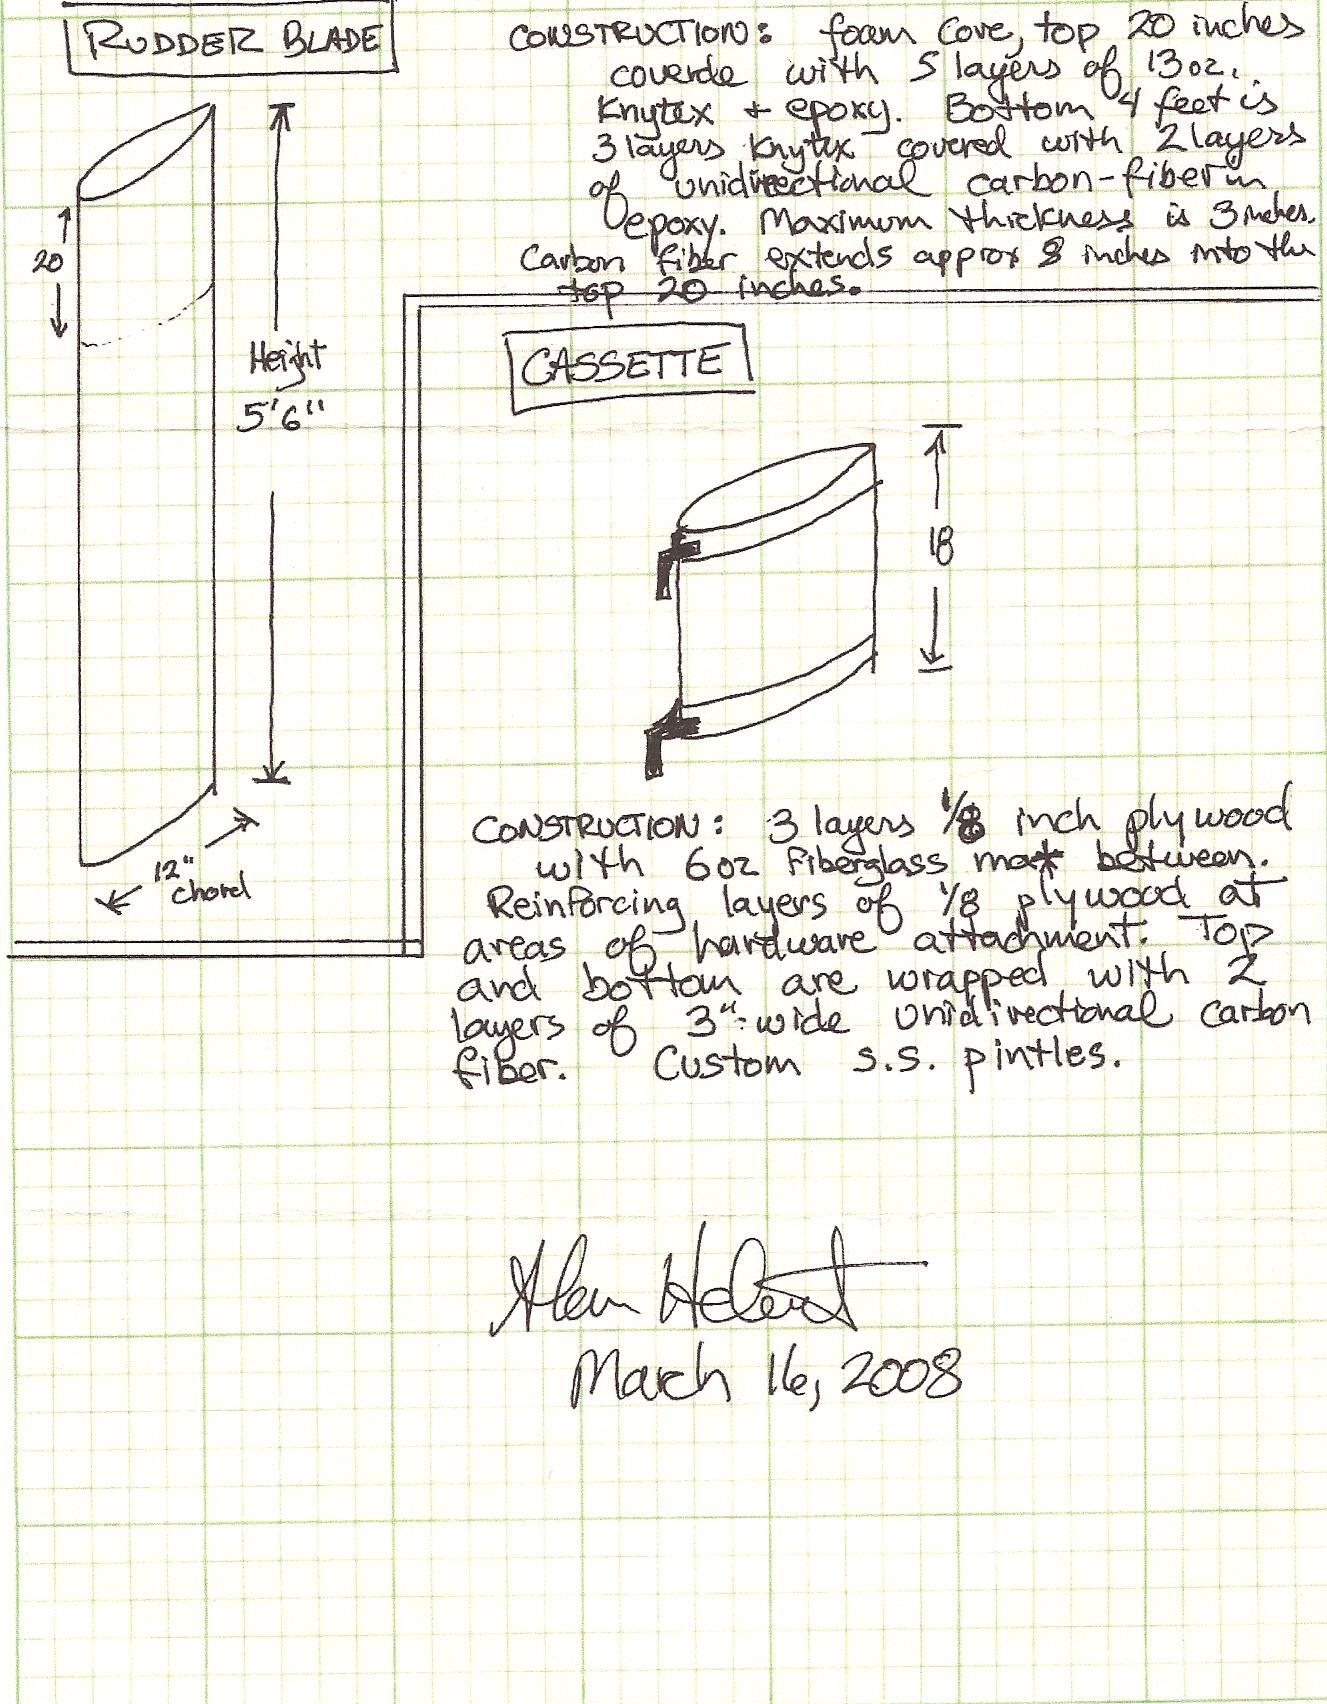 RUDDER BLADE
CONSTRUCTION: foam Core, top 20 inches
coverde with 5 layers of 13oz.
Knytex + epoxy. Bottom 4 feet is
3 layers Knytex covered with 2 layers
of unidirectional carbon-fiber in
epoxy. Maximum thickness is 3 inches.
Carbon fiber extends approx 8 inches into the
top 20 inches.
20
Height
5'6"
12"
chord
CASSETTE
18
CONSTRUCTION: 3 layers 1/8 inch plywood
with 6oz fiberglass mat between.
Reinforcing layers of 1/8 plywood at
areas of hardware attachment. Top
and bottom are wrapped with 2
layers of 3"-wide unidirectional carbon
fiber. Custom s.s. pintles.
Alan Hebert
March 16, 2008